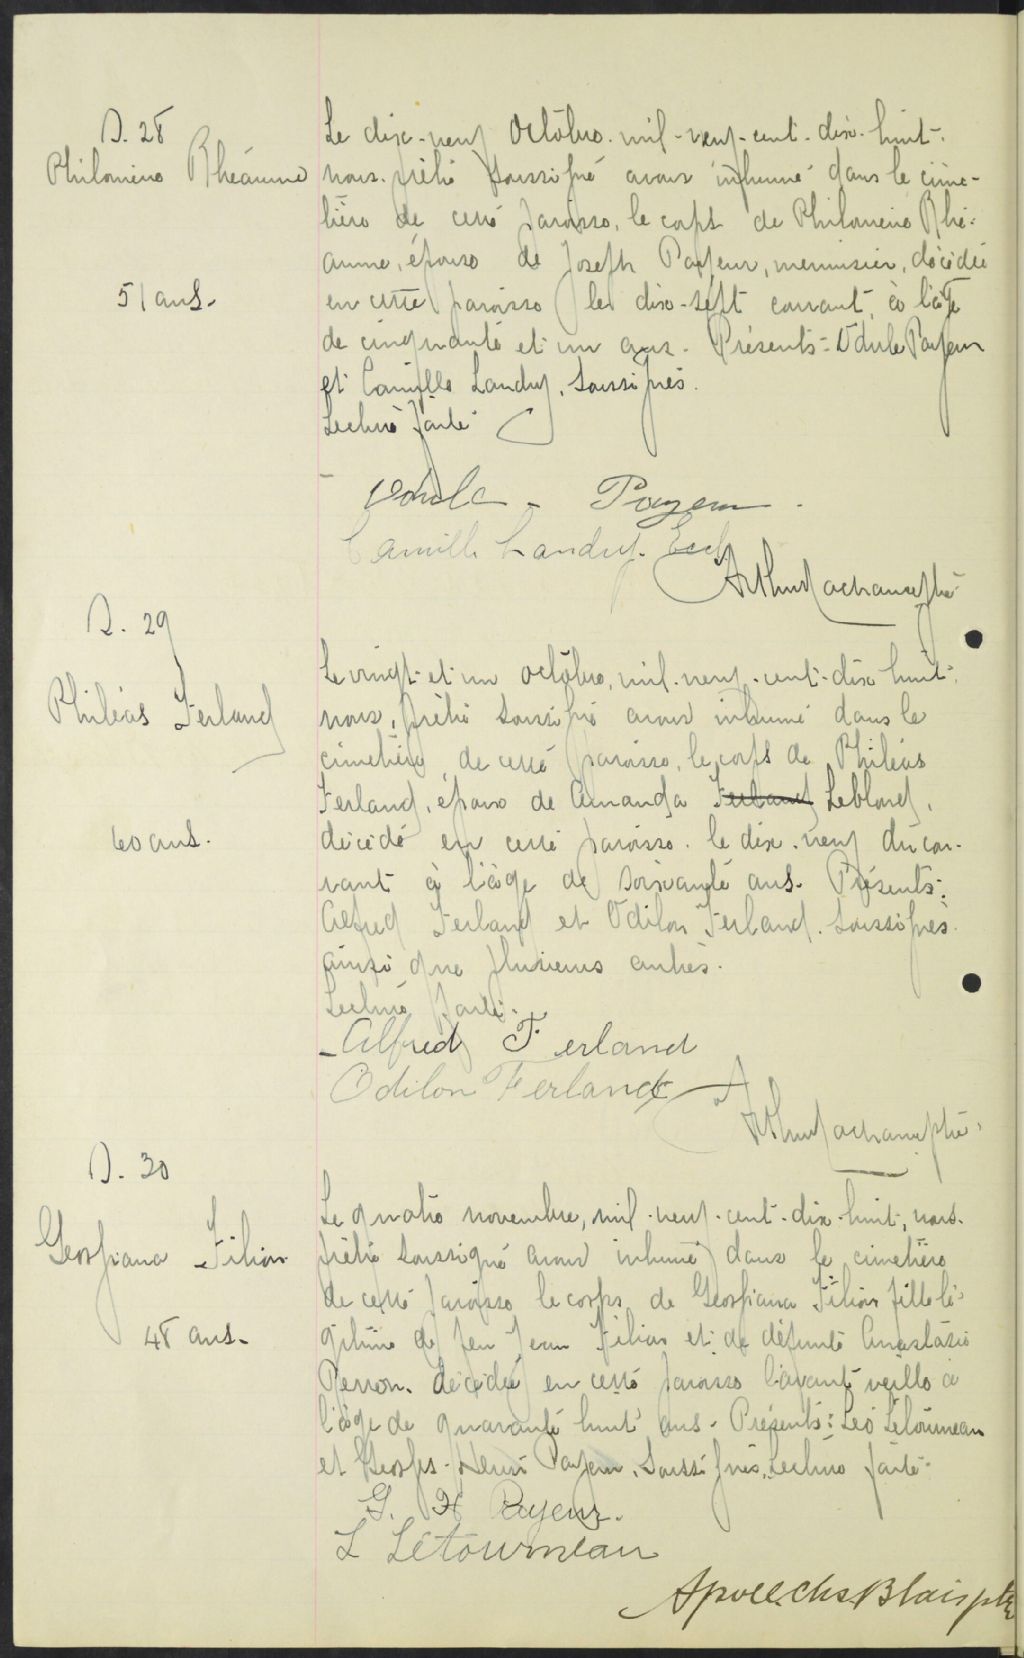 S. 28
Philomène Rhéaume
51 ans.
Le dix-neuf Octobre mil-neuf-cent-dix-huit,
nous prêtre soussigné avons inhumé dans le cime-
tière de cette paroisse, le corps de Philomène Rhé-
aume, épouse de Joseph Payeur, menuisier, décédée
en cette paroisse le dix-sept courant, à l'âge
de cinquante et un ans. Présents: Odule Payeur
et Camille Landry, soussignés.
Lecture faite
Odule Payeur.
Camille Landry. Eccl.
Arthur Lachance ptre
S. 29
Philéas Ferland
60 ans.
Le vingt-et un octobre, mil-neuf-cent-dix huit,
nous, prêtre soussigné avons inhumé dans le
cimetière de cette paroisse, le corps de Philéas
Ferland, époux de Amanda Ferland Leblond,
décédé en cette paroisse le dix-neuf du cou-
rant à l'âge de soixante ans. Présents:
Alfred Ferland et Odilon Ferland soussignés
ainsi que plusieurs autres.
Lecture faite.
Alfred Ferland
Odilon Ferland
Arthur Lachance ptre
S. 30
Georgiana Filion
48 ans.
Le quatre novembre, mil-neuf-cent-dix-huit, nous
prêtre soussigné avons inhumé dans le cimetière
de cette paroisse le corps de Georgiana Filion fille lé-
gitime de feu Jean Filion et de défunte Anastasie
Perron, décédée en cette paroisse l'avant veille à
l'âge de quarante huit ans. Présents: Léo Létourneau
et Georges-Henri Payeur, soussignés, Lecture faite.
G. H Payeur.
L Létourneau
Apoll. Chs Blais ptre